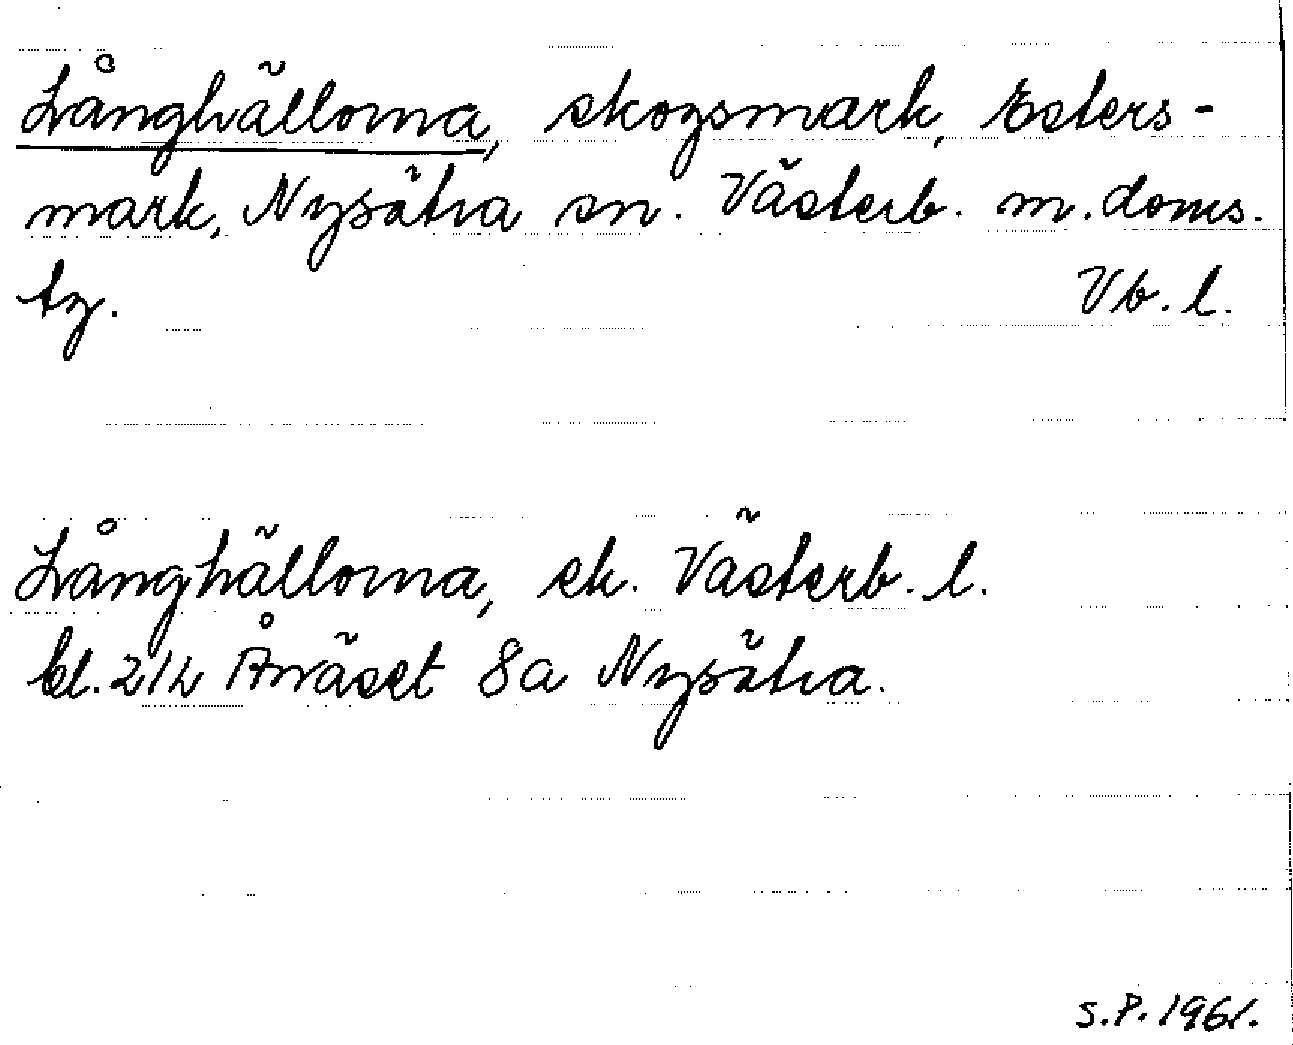 Långhällorna, skogsmark, Esters-
mark, Nysätra sn. Västerb. m. doms.
tg.   Vb. l.
Långhällorna, sk. Västerb. l.
bl. 21h Ånäset 8a Nysätra.
S.P. 1961.